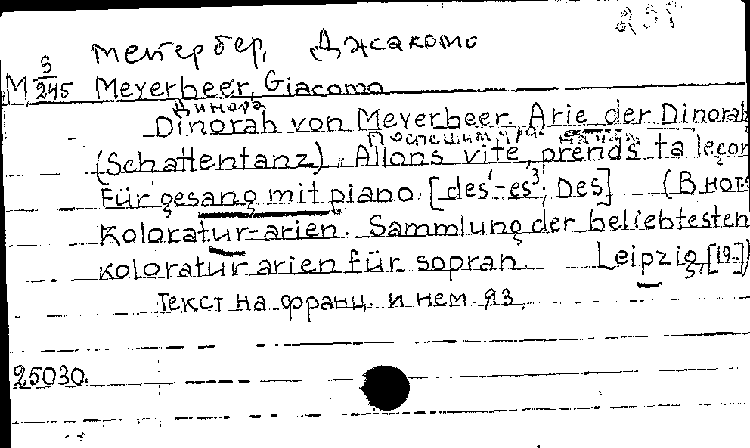 Мейербер, Джакомо
М 3/245 Meyerbeer, Giacomo
Динора
Dinorah von Meyerbeer. Arie der Dinorah
(Schattentanz), Allons vite, prends ta leçon
Für gesang mit piano. [des'-es³; Des] (В нот.
Koloratur-arien. Sammlung der beliebtesten
koloratur arien für sopran. Leipzig, [19-])
Текст на франц. и нем яз.
25030.